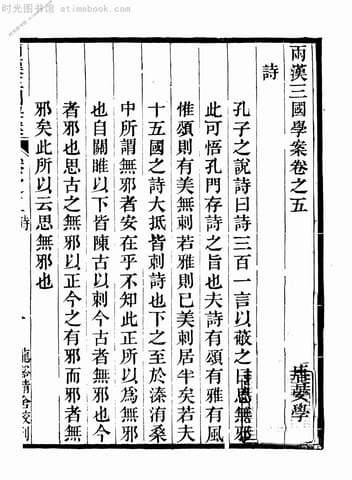 时光图书馆 atimebook.com
兩漢三國學案卷之五
唐晏學
詩
孔子之說詩曰詩三百一言以蔽之曰思無邪
此可悟孔門存詩之旨也夫詩有頌有雅有風
惟頌則有美無刺若雅則已美刺居半矣若夫
十五國之詩大抵皆刺詩也下之至於溱洧桑
中所謂無邪者安在乎不知此正所以為無邪
也自關雎以下皆陳古以刺今古者無邪也今
者邪也思古之無邪以正今之有邪而邪者無
邪矣此所以云思無邪也
詩
一
龍谿精舍校刊